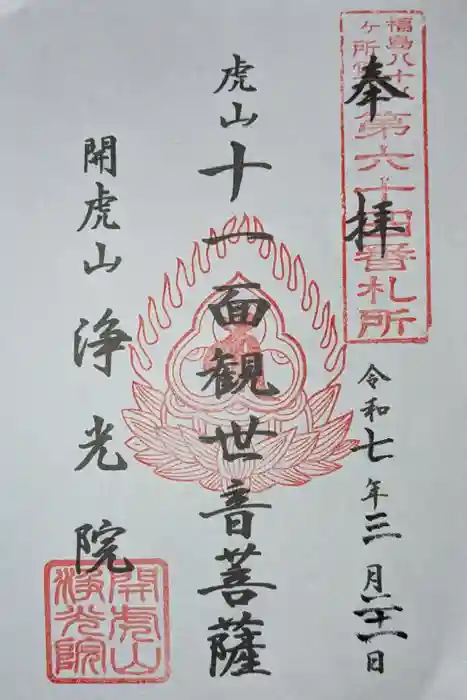 福島八十八
ヶ所
第六十四番札所
奉拝
令和七年三月二十一日
虎山
十一面観世音菩薩
開虎山
浄光院
開虎山
浄光院